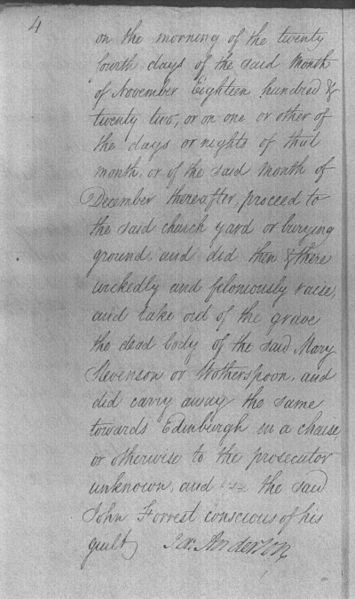 4
on the morning of the twenty
fourth days of the said Month
of November Eighteen hundred &
twenty two, or on one or other of
the days or nights of that
month, or of the said month of
December thereafter, proceed to
the said church yard or burying
ground, and did then & there
wickedly and feloniously raise,
and take out of the grave
the dead body of the said Mary
Stevenson or Wotherspoon, and
did carry away the same
towards Edinburgh in a chaise
or otherwise to the prosecutor
unknown, and the said
John Forrest conscious of his
guilt Anderson